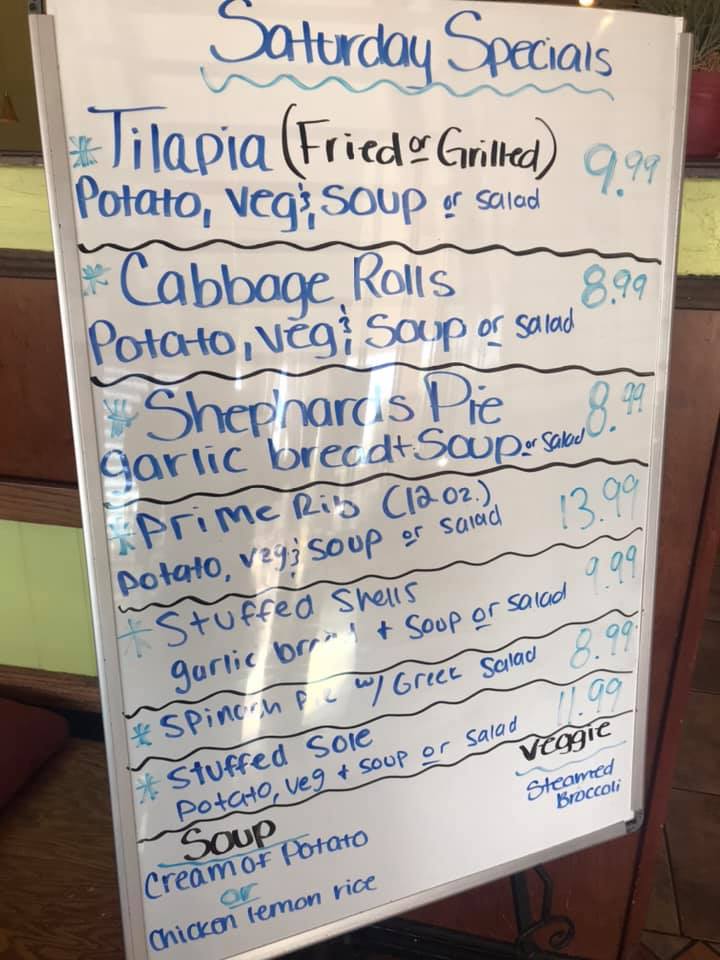 Saturday Specials
* Tilapia (Fried or Grilled) 9.99
Potato, veg & soup or salad
* Cabbage Rolls 8.99
Potato, veg & soup or salad
* Shephards Pie 8.99
garlic bread + soup or salad
* Prime Rib (12 oz.) 13.99
potato, veg & soup or salad
* Stuffed Shells 9.99
garlic bread + soup or salad
* Spinach Pie w/ Greek Salad 8.99
* Stuffed Sole 11.99
potato, veg + soup or salad
Veggie
Steamed
Broccoli
Soup
Cream of Potato
or
Chicken lemon rice